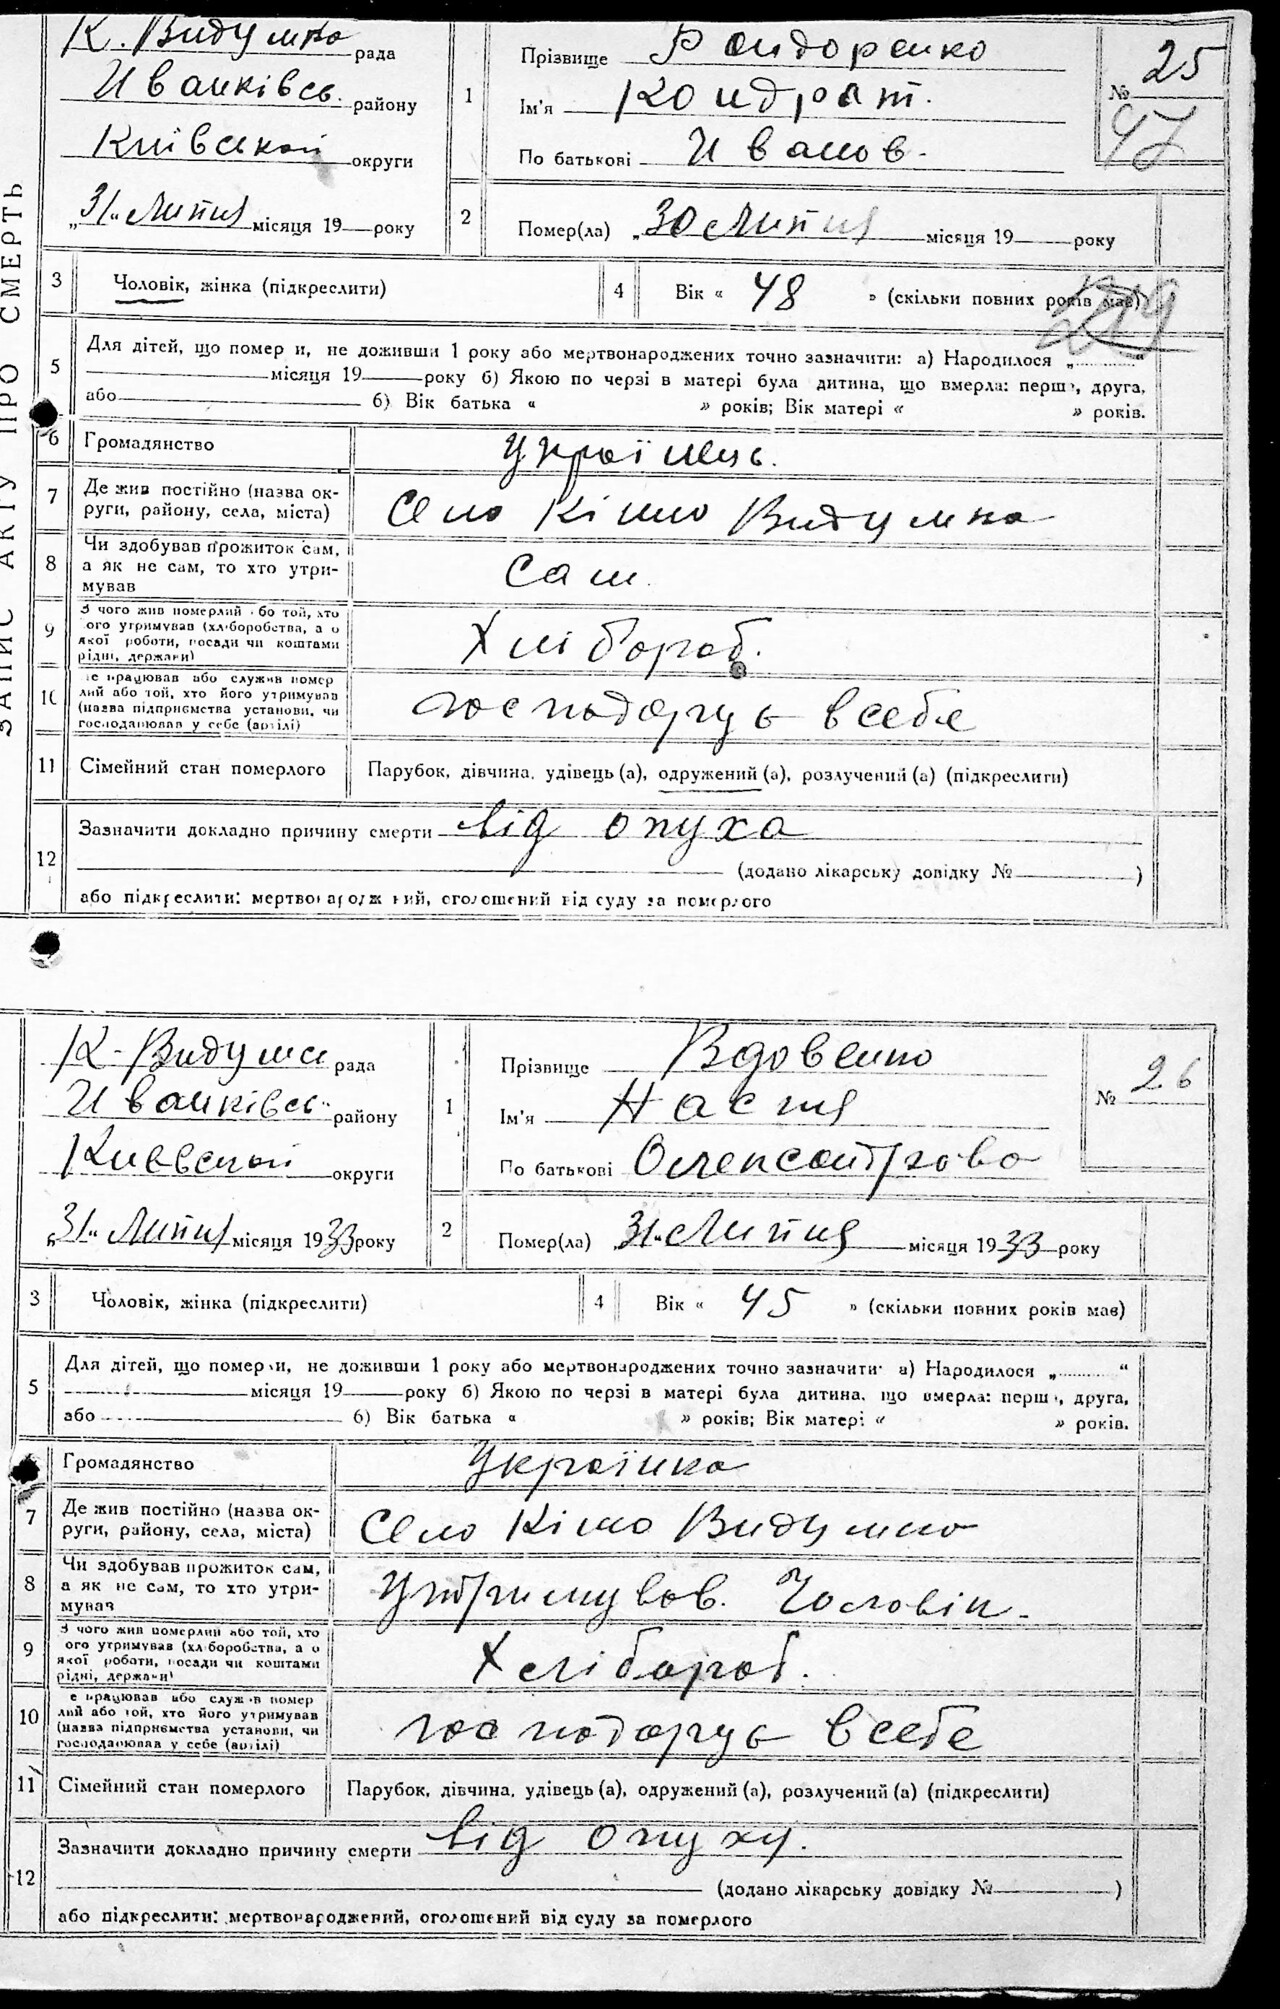 ЗАПИС АКТУ ПРО СМЕРТЬ
К. Видумка рада
Иванківсь. району
Київської округи
„31“ Липня місяця 19 року
1
Прізвище Бондоренко
Ім'я Кондрат.
По батькові Иванов.
№ 25
47
2
Помер(ла) „30 Липня місяця 19 року
3 Чоловік, жінка (підкреслити)
4 Вік « 48 » (скільки повних років має)
219
5 Для дітей, що померли, не доживши 1 року або мертвонароджених точно зазначити: а) Народилося „ “
місяця 19 року б) Якою по черзі в матері була дитина, що вмерла: перша, друга,
або б) Вік батька « » років; Вік матері « » років.
6 Громадянство Українець.
7 Де жив постійно (назва ок-
руги, району, села, міста) Село Кішо Видумка
8 Чи здобував прожиток сам,
а як не сам, то хто утри-
мував Сам.
9 З чого жив померлий або той, хто
його утримував (хліборобства, а о
якої роботи, посади чи коштами
рідні, держави) Хлібороб.
10 е працював або служив помер
лий або той, хто його утримував
(назва підприємства установи, чи
господарював у себе (артілі) господорує в себе
11 Сімейний стан померлого Парубок, дівчина, удівець (а), одружений (а), розлучений (а) (підкреслити)
12 Зазначити докладно причину смерти від опуха
(додано лікарську довідку № )
або підкреслити: мертвонароджений, оголошений від суду за померлого
К. Видумка рада
Иванківсь. району
Киевской округи
„31“ Липня місяця 1933 року
1
Прізвище Вдовенко
Ім'я Настя
По батькові Олександрова
№ 26
2
Помер(ла) „31“ Липня місяця 1933 року
3 Чоловік, жінка (підкреслити)
4 Вік « 45 » (скільки повних років має)
5 Для дітей, що померли, не доживши 1 року або мертвонароджених точно зазначити: а) Народилося „ “
місяця 19 року б) Якою по черзі в матері була дитина, що вмерла: перша, друга,
або б) Вік батька « » років; Вік матері « » років.
6 Громадянство Українка
7 Де жив постійно (назва ок-
руги, району, села, міста) Село Кішо Видумка
8 Чи здобував прожиток сам,
а як не сам, то хто утри-
мував Утримував. Чоловік.
9 З чого жив померлий або той, хто
його утримував (хліборобства, а о
якої роботи, посади чи коштами
рідні, держави) Хлібороб.
10 е працював або служив помер
лий або той, хто його утримував
(назва підприємства установи, чи
господарював у себе (артілі) господорує в себе
11 Сімейний стан померлого Парубок, дівчина, удівець (а), одружений (а), розлучений (а) (підкреслити)
12 Зазначити докладно причину смерти від опуху.
(додано лікарську довідку № )
або підкреслити: мертвонароджений, оголошений від суду за померлого